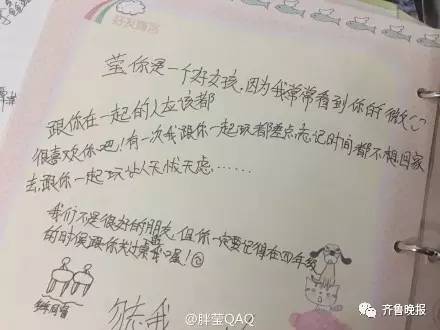 好友留言
莹你是一个好女孩,因为我常常看到你的微
跟你在一起的人应该都
很喜欢你吧!有一次我跟你一起玩都差点忘记时间都不想回家
去,跟你一起玩让人无忧无虑……
我们不是很好的朋友,但你一定要记得在四年级
的时候跟你关过桌喔!
勿忘我
@胖莹QAQ
齐鲁晚报